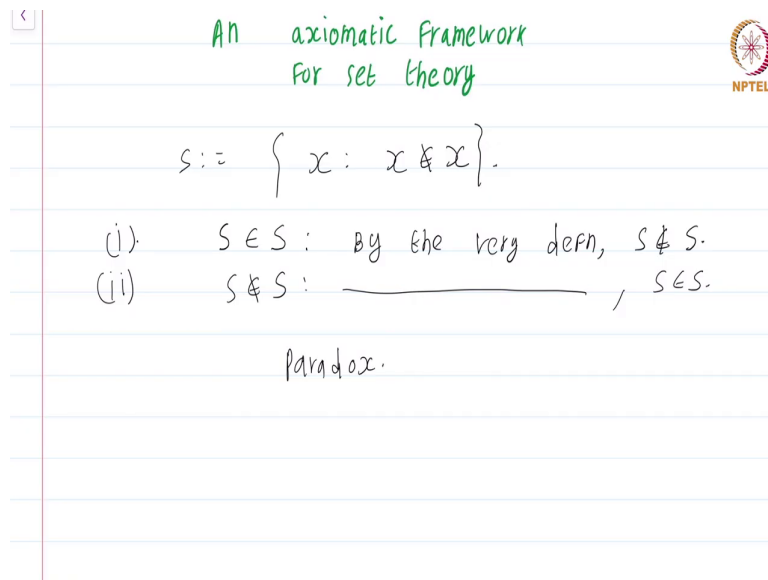 An axiomatic Framework
For set theory
NPTEL
S := { x : x ∉ x }.
(i). S ∈ S : By the very defn, S ∉ S.
(ii) S ∉ S : ———————— , S ∈ S.
Paradox.